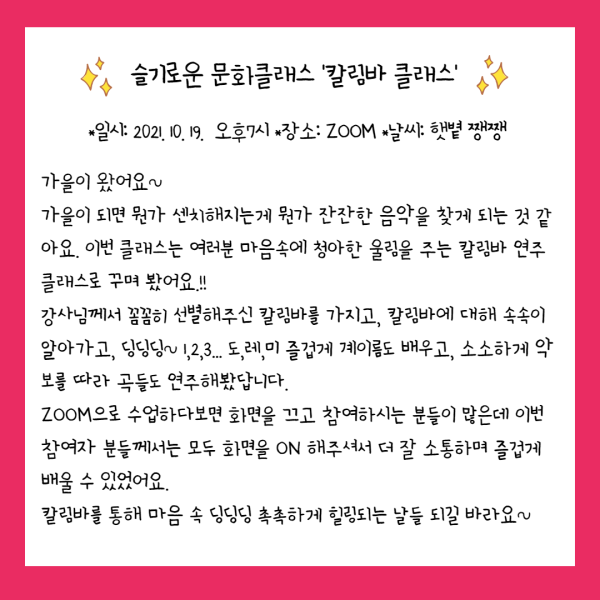 슬기로운 문화클래스 '칼림바 클래스'
*일시: 2021. 10. 19. 오후7시 *장소: ZOOM *날씨: 햇볕 쨍쨍
가을이 왔어요~
가을이 되면 뭔가 센치해지는게 뭔가 잔잔한 음악을 찾게 되는 것 같
아요. 이번 클래스는 여러분 마음속에 청아한 울림을 주는 칼림바 연주
클래스로 꾸며 봤어요.!!
강사님께서 꼼꼼히 선별해주신 칼림바를 가지고, 칼림바에 대해 속속이
알아가고, 딩딩딩~ 1,2,3... 도,레,미 즐겁게 계이름도 배우고, 소소하게 악
보를 따라 곡들도 연주해봤답니다.
ZOOM으로 수업하다보면 화면을 끄고 참여하시는 분들이 많은데 이번
참여자 분들께서는 모두 화면을 ON 해주셔서 더 잘 소통하며 즐겁게
배울 수 있었어요.
칼림바를 통해 마음 속 딩딩딩 촉촉하게 힐링되는 날들 되길 바라요~